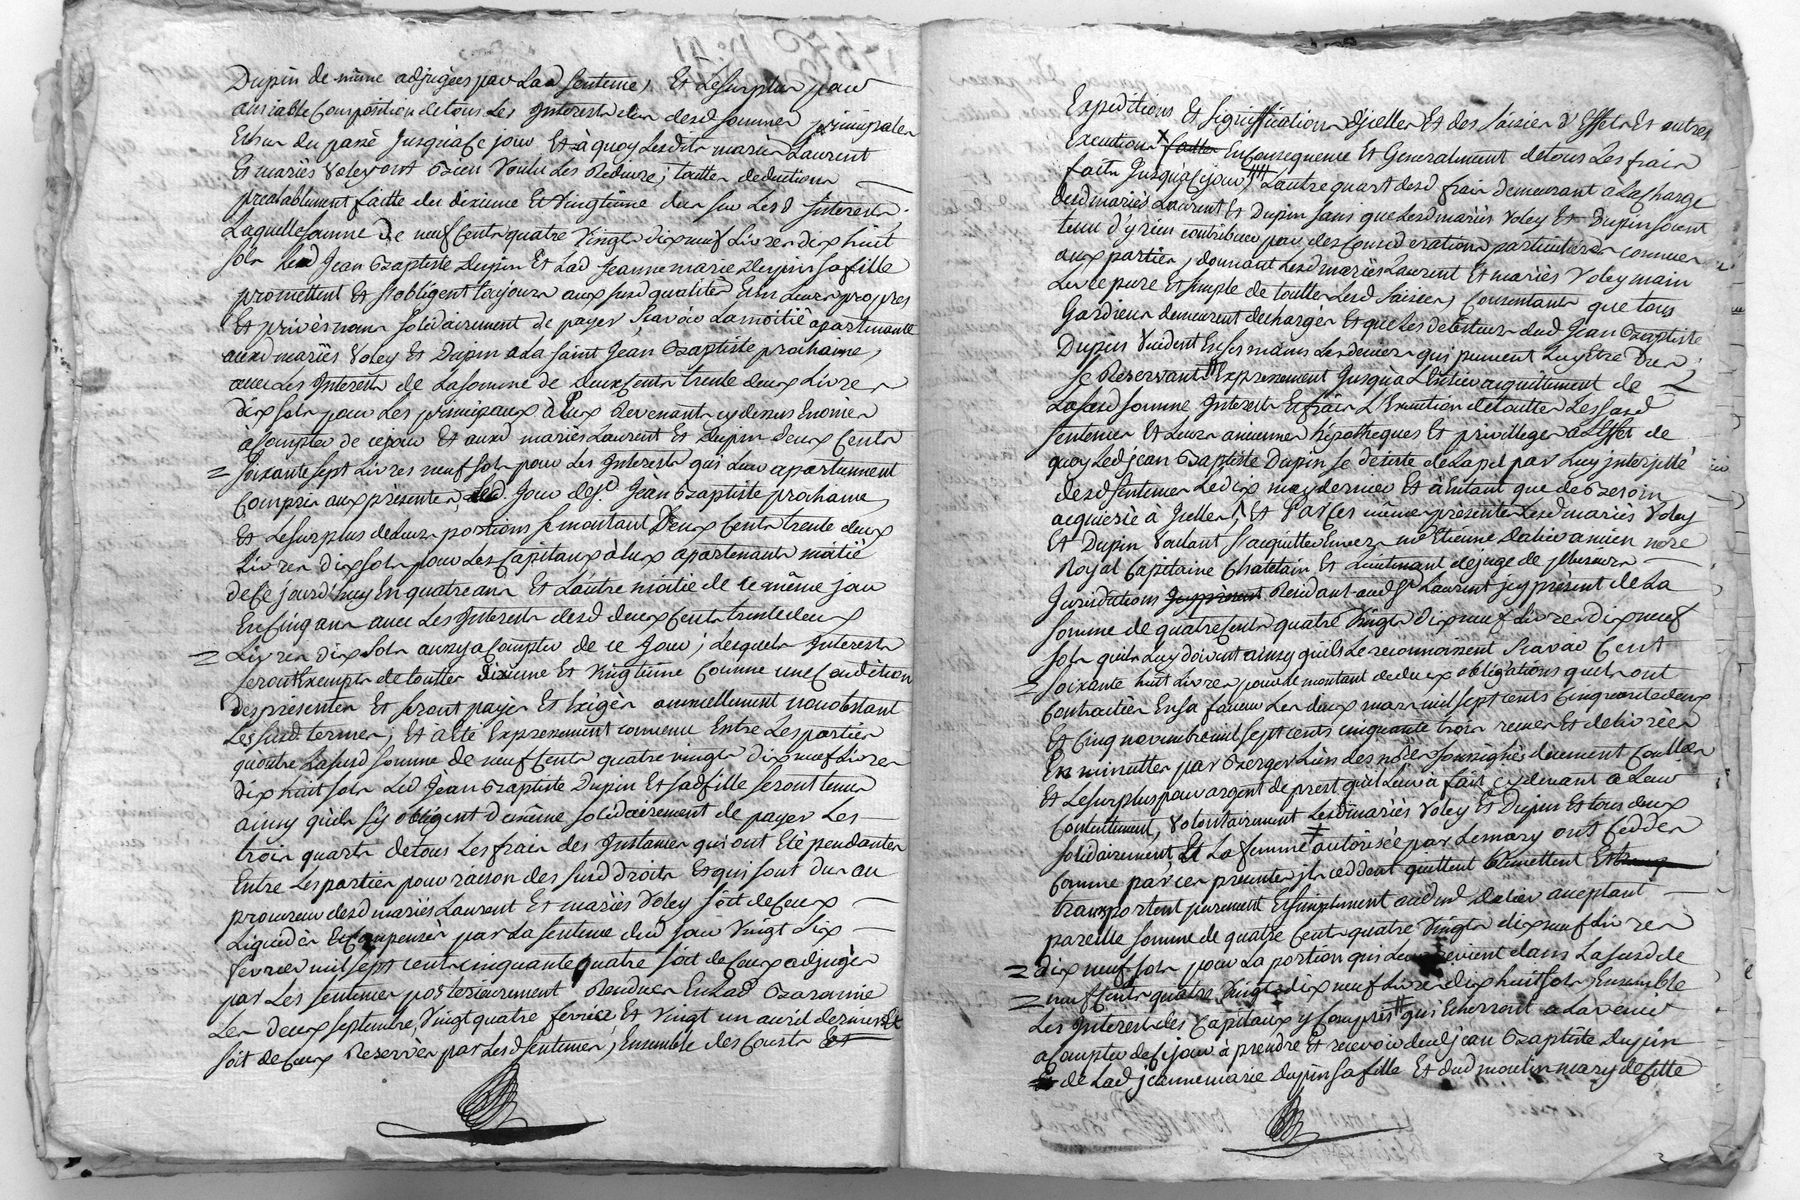 Dupin de même adjugées par Lad Sentence, Et Le Surplus pour
amiable Composition de tous Les Interests des desd sommes principales
Et sur du passé Jusqua Ce jour Et à quoy Lesdits mariés Laurent
Et mariés Voley ont Bien Voulu Les Reduire; touttes deductions
prealablement faitte du dixieme Et Vingtième dus sur Lesd Interests.
Laquelle somme De neuf Cents quatre Vingts dix neuf Livres dix huit
sols Led Jean Baptiste Dupin Et Lad Jeanne marie Dupin sa fille
promettent Et s'obligent toujours aux susd qualités Et En Leurs propres
Et privés noms solidairement de payer Scavoir La moitié apartenante
auxd mariés Voley Et Dupin a La saint Jean Baptiste prochaine,
avec Les Interests de La somme de deux Cents trente deux Livres
dix sols pour Les principaux à Eux Revenants cy dessus Enoncés
à Compter de ce jour Et auxd mariés Laurent Et Dupin deux Cents
soixante sept Livres neuf sols pour Les Interests qui Leur apartiennent
Compris aux présentes, Led. Jour de St Jean Baptiste prochaine
Et Le Surplus de Leurs portions se montant Deux Cents trente deux
Livres dix sols pour Les Capitaux à Eux apartenants moitié
de Ce jourd'huy En quatre ans Et L'autre moitié de ce même jour
En Cinq ans avec Les Interests desd deux Cents trente deux
Livres dix sols aussy a Compter de ce Jour; Lesquels Interests
seront Exempts de touttes dixieme Et Vingtième Comme une Condition
Des presentes Et seront payés Et Exigés annuellement nonobstant
Les susd. termes; Et a Eté Expressement convenu Entre Les parties
qu'outre La susd somme de neuf Cents quatre vingts dix neuf Livres
dix huit sols Led Jean Baptiste Dupin Et sad fille seront tenus
ainsy qu'ils s'y obligent de même solidairement de payer Les
trois quarts de tous Les frais des Instances qui ont Eté pendantes
Entre Les parties pour raison des susd droits Et qui sont dus au
procureur desd mariés Laurent Et mariés Voley soit de Ceux
Liquidés Et Compensés par La sentence dud jour Vingt six
fevrier mil sept cents cinquante quatre soit de Ceux adjugés
par Les sentences posterieurement Rendues En Lad Baronnie
Les deux septembre, Vingt quatre fevrier Et Vingt un avril derniers Et
soit de Ceux Reservés par Lesd sentences, Ensemble des Cousts Et
Expeditions Et Signiffications d'Icelles Et des Saisies d'Effets Et autres
Executions faittes En Consequence Et Generalement de tous Les frais
faits Jusqua Ce jour, L'autre quart desd frais demeurant a La Charge
desd mariés Laurent Et Dupin sans que Lesd mariés Voley Et Dupin soient
tenus d'y rien contribuer pour des Considerations particulieres connues
aux parties, donnant Lesd mariés Laurent Et mariés Voley main
Levée pure Et simple de touttes Lesd saisies, Consentants que tous
Gardiens demeurent dechargés Et que Les debiteurs dud Jean Baptiste
Dupin Vuident En ses mains Les deniers qui peuvent Luy Etre Dus;
se Reservant Expressement Jusqu'a L'Entier acquittement de
La susd somme Interests Et frais L'Execution de touttes Les susd
sentences Et Leurs anciennes hipotheques Et privilleges a L'Effet de
quoy Led jean Baptiste Dupin se desiste de L'apel par Luy interjetté
desd sentences Le dix may dernier Et à autant que de Besoin
acquiesce à Jcelles, Et Par Ces mêmes présentes Lesd mariés Voley
Et Dupin Voulant s'acquitter Envers me Etienne Dalier ancien nore
Royal Capitaine Chatelain Et Lieutenant de juge de plusieurs
Jurisdictions Jcy present Residant aud St Laurent jcy présent de La
somme de quatre Cents quatre Vingts dix neuf Livres dix neuf
sols qu'ils Luy doivent ainsy qu'ils Le reconnoissent Scavoir Cent
soixante huit Livres pour Le montant de deux obligations qu'ils ont
Contractées En sa faveur Les deux mars mil sept cents Cinquante deux
Et Cinq novembre mil sept cents cinquante trois recues Et delivrées
En minuttes par Berger L'un des nores soussignés duement Collées
Et Le Surplus pour argent de prest qu'il Leur a fait Cy devant a Leur
Contentement, Volontairement Lesd mariés Voley Et Dupin Et tous deux
solidairement Et La femme autorisée par Le mary ont Ceddés
Comme par ces presentes ils ceddent quittent Remettent Et
transportent purement Et simplement aud me Dalier aceptant
pareille somme de quatre Cents quatre Vingts dix neuf Livres
dix neuf sols pour La portion qui Leur revient dans La susd de
neuf Cents quatre Vingts dix neuf Livres dix huit sols Ensemble
Les Interests des Capitaux y Compris qui Echerront a L'avenir
a Compter de Ce jour à prendre Et recevoir dud jean Baptiste Dupin
de Lad jeanne marie Dupin sa fille Et dud moulin mary de Cette